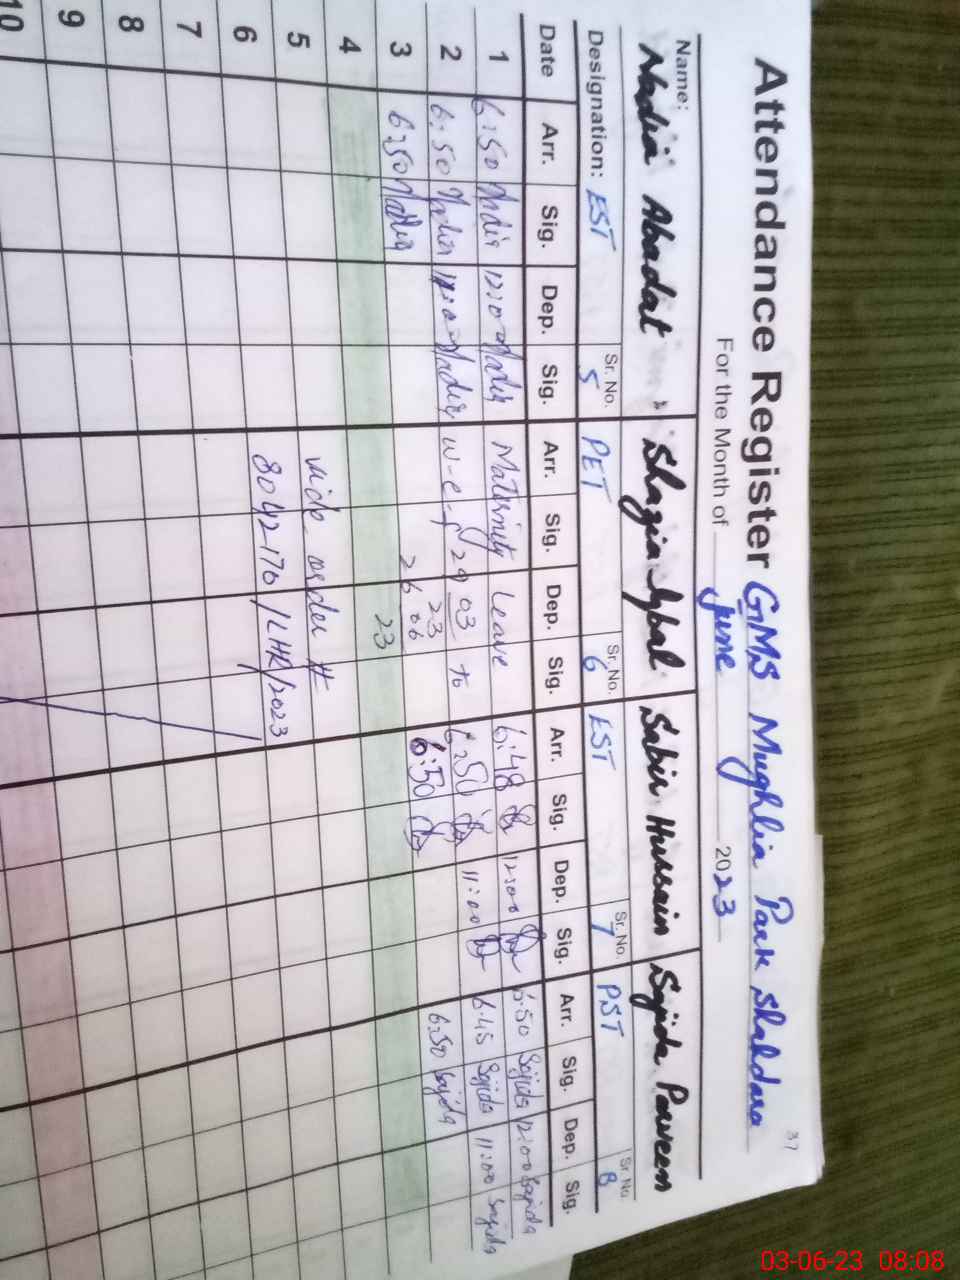 37
Attendance Register GMS Mughlia Park Shahdara
For the Month of June 2023
Name: Nadia Abadat Shazia Iqbal Sabir Hussain Sajida Parveen
Designation: EST Sr. No. 5 PET Sr. No. 6 EST Sr. No. 7 PST Sr. No. 8
Date Arr. Sig. Dep. Sig. Arr. Sig. Dep. Sig. Arr. Sig. Dep. Sig. Arr. Sig. Dep. Sig.
1 6:50 Nadia 12:00 Nadia Maternity Leave 6:48 12:00 6:50 Sajida 12:00 Sajida
2 6:50 Nadia 11:00 Nadia w-e-f 29 03 23 to 6:50 11:00 6:45 Sajida 11:00 Sajida
3 6:50 Nadia 26 06 23 6:50 6:50 Sajida
4
5 vide order #
6 8042170/LHR/2023
7
8
9
10
03-06-23 08:08